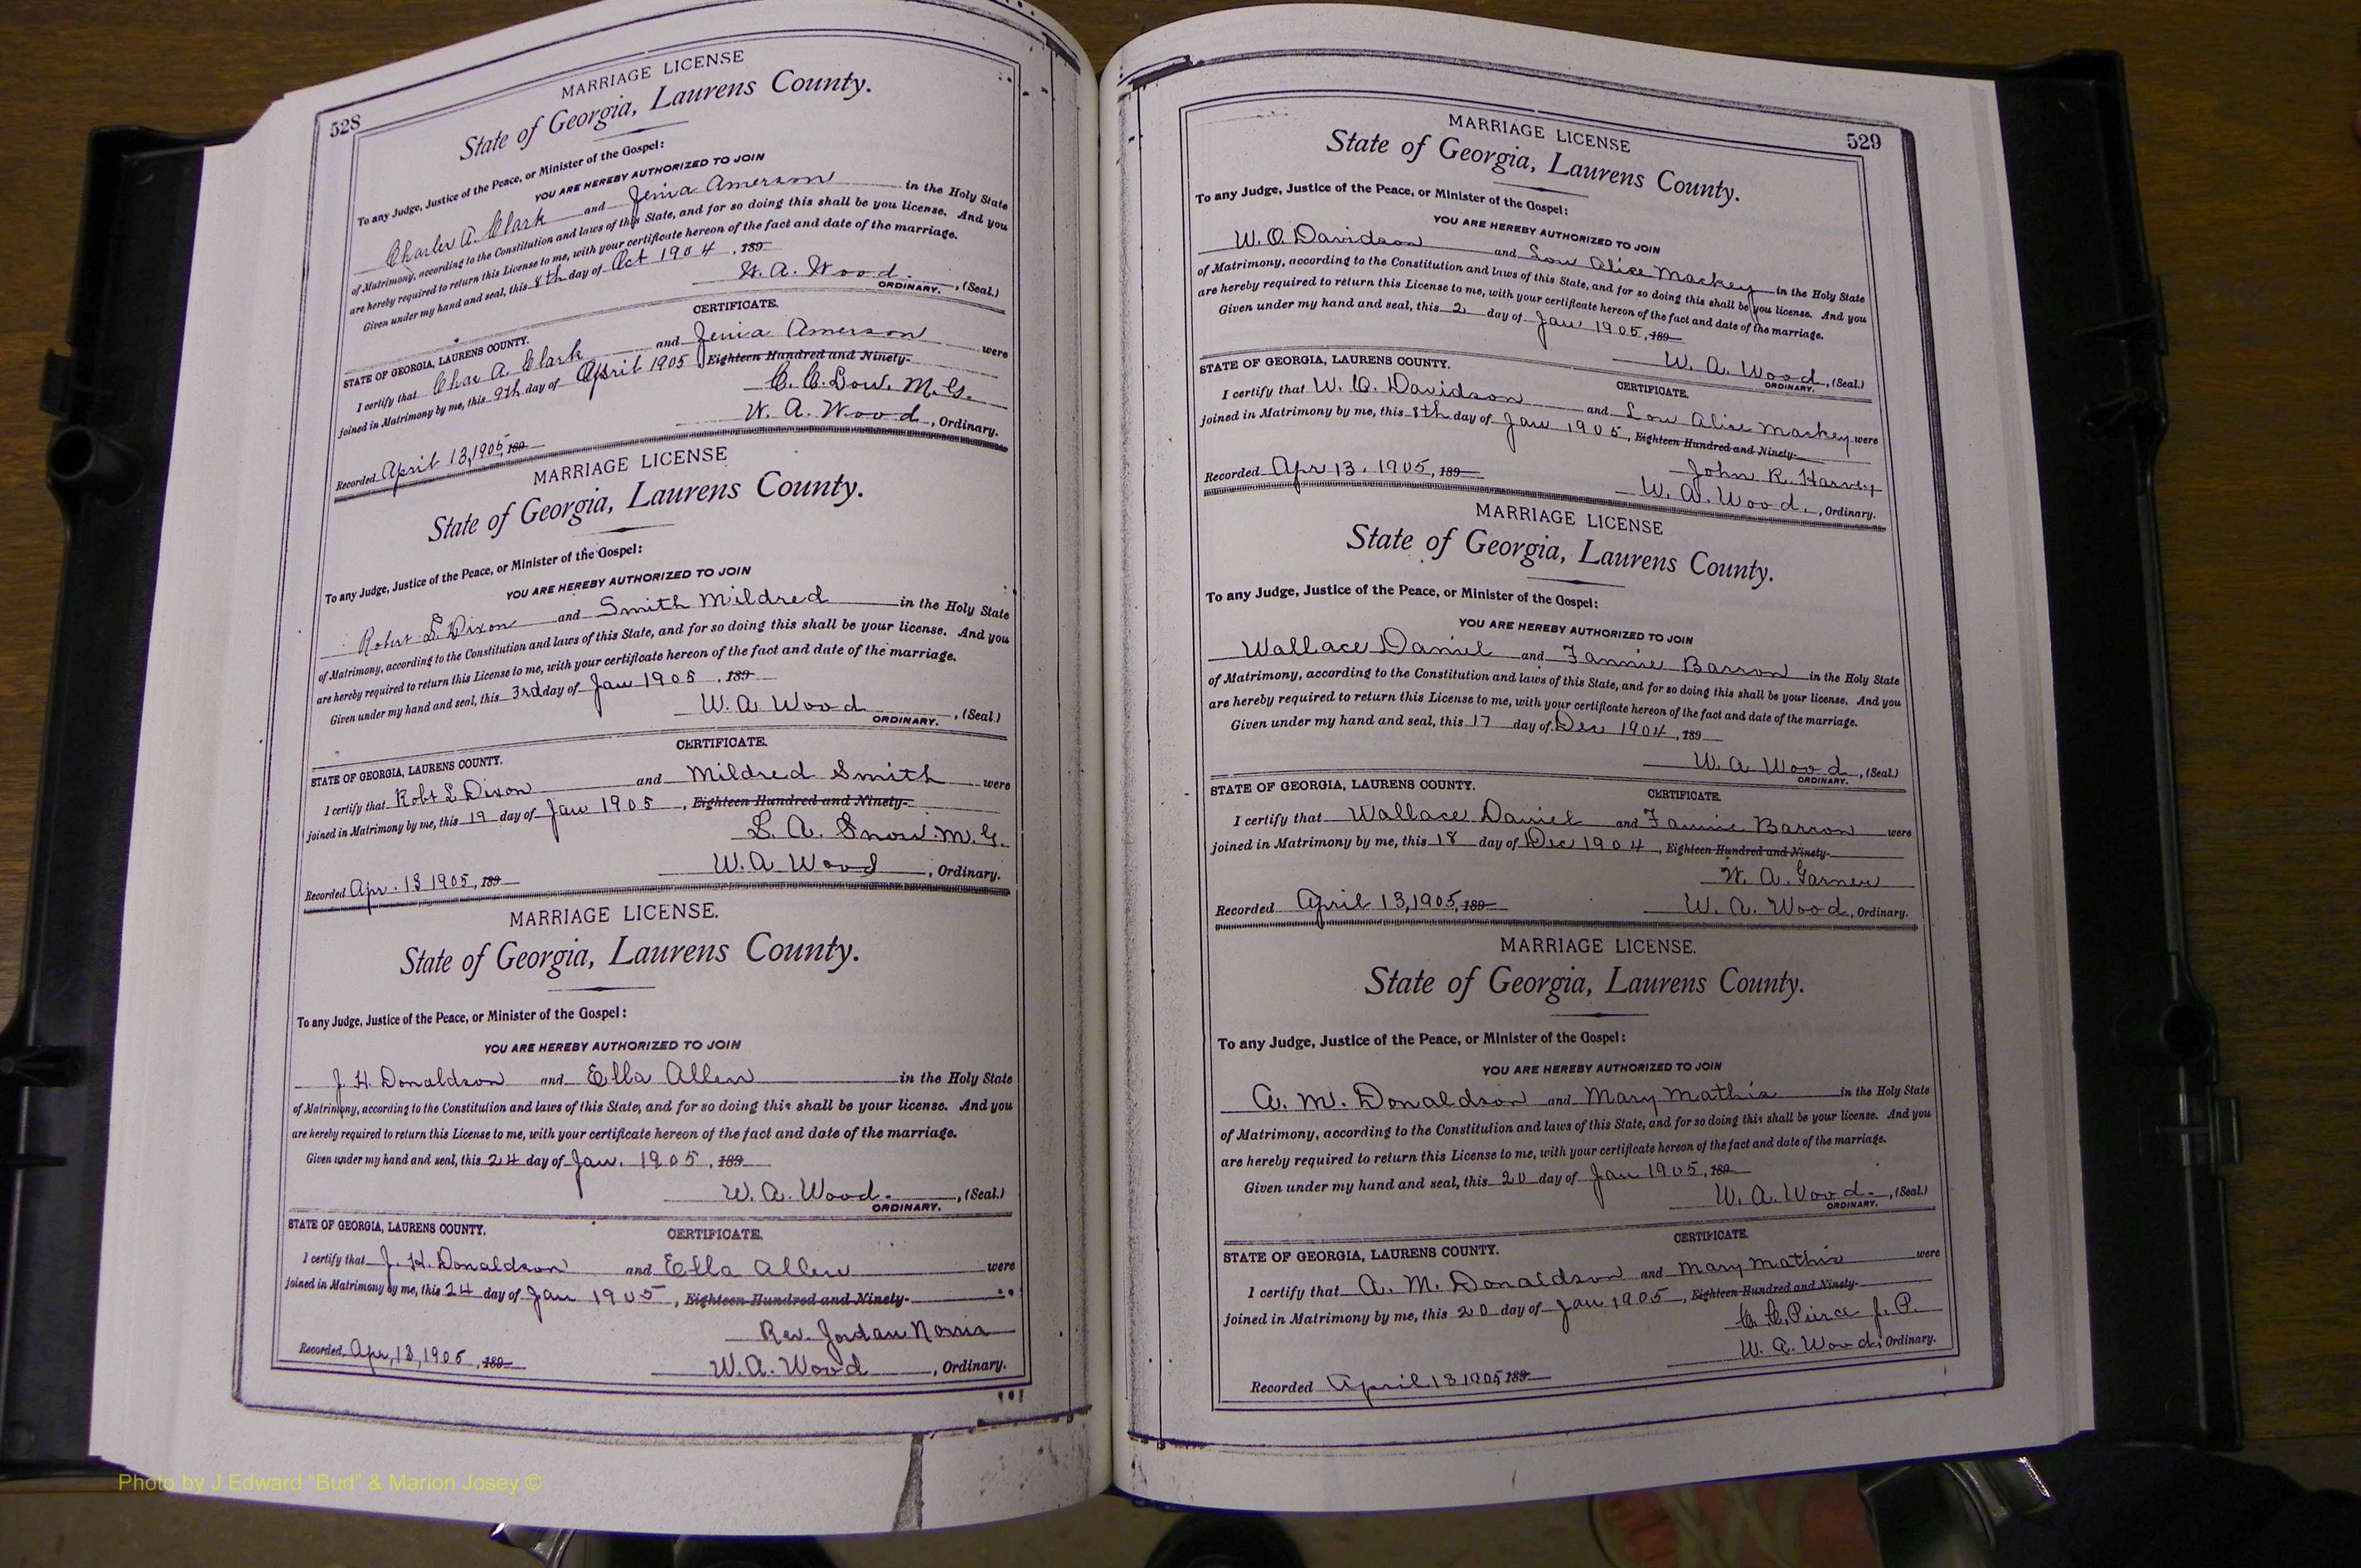 528
MARRIAGE LICENSE
State of Georgia, Laurens County.
To any Judge, Justice of the Peace, or Minister of the Gospel:
YOU ARE HEREBY AUTHORIZED TO JOIN
Charles A. Clark and Jenia Amerson in the Holy State
of Matrimony, according to the Constitution and laws of this State, and for so doing this shall be you license. And you
are hereby required to return this License to me, with your certificate hereon of the fact and date of the marriage.
Given under my hand and seal, this 8th day of Oct 1904, 189
W. A. Wood. , (Seal.)
ORDINARY.
CERTIFICATE.
STATE OF GEORGIA, LAURENS COUNTY.
I certify that Chas A. Clark and Jenia Amerson were
joined in Matrimony by me, this 9th day of April 1905 Eighteen Hundred and Ninety-
C. C. Low. M. G.
W. A. Wood, Ordinary.
Recorded April 13, 1905, 189
MARRIAGE LICENSE
State of Georgia, Laurens County.
To any Judge, Justice of the Peace, or Minister of the Gospel:
YOU ARE HEREBY AUTHORIZED TO JOIN
Robert L. Dixon and Smith Mildred in the Holy State
of Matrimony, according to the Constitution and laws of this State, and for so doing this shall be your license. And you
are hereby required to return this License to me, with your certificate hereon of the fact and date of the marriage.
Given under my hand and seal, this 3rd day of Jan 1905, 189
W. A. Wood , (Seal.)
ORDINARY.
CERTIFICATE.
STATE OF GEORGIA, LAURENS COUNTY.
I certify that Robt L Dixon and Mildred Smith were
joined in Matrimony by me, this 19 day of Jan 1905, Eighteen Hundred and Ninety-
L. A. Snow. M. G.
W. A. Wood, Ordinary.
Recorded Apr. 13 1905, 189
MARRIAGE LICENSE.
State of Georgia, Laurens County.
To any Judge, Justice of the Peace, or Minister of the Gospel:
YOU ARE HEREBY AUTHORIZED TO JOIN
J. H. Donaldson and Ella Allen in the Holy State
of Matrimony, according to the Constitution and laws of this State, and for so doing this shall be your license. And you
are hereby required to return this License to me, with your certificate hereon of the fact and date of the marriage.
Given under my hand and seal, this 24 day of Jan. 1905, 189
W. A. Wood. , (Seal.)
ORDINARY.
STATE OF GEORGIA, LAURENS COUNTY.
CERTIFICATE.
I certify that J. H. Donaldson and Ella Allen were
joined in Matrimony by me, this 24 day of Jan 1905, Eighteen Hundred and Ninety-
Rev. Jordan
W. A. Wood, Ordinary.
Recorded, Apr, 13, 1905, 189
529
MARRIAGE LICENSE
State of Georgia, Laurens County.
To any Judge, Justice of the Peace, or Minister of the Gospel:
YOU ARE HEREBY AUTHORIZED TO JOIN
W. O. Davidson and Lou Alice Mackey in the Holy State
of Matrimony, according to the Constitution and laws of this State, and for so doing this shall be you license. And you
are hereby required to return this License to me, with your certificate hereon of the fact and date of the marriage.
Given under my hand and seal, this 2 day of Jan 1905, 189
W. A. Wood, (Seal.)
ORDINARY.
STATE OF GEORGIA, LAURENS COUNTY.
CERTIFICATE.
I certify that W. O. Davidson and Lou Alice Mackey were
joined in Matrimony by me, this 8th day of Jan 1905, Eighteen Hundred and Ninety-
John R. Harvey
Recorded Apr 13. 1905, 189
W. A. Wood. , Ordinary.
MARRIAGE LICENSE
State of Georgia, Laurens County.
To any Judge, Justice of the Peace, or Minister of the Gospel:
YOU ARE HEREBY AUTHORIZED TO JOIN
Wallace Daniel and Fannie Barron in the Holy State
of Matrimony, according to the Constitution and laws of this State, and for so doing this shall be your license. And you
are hereby required to return this License to me, with your certificate hereon of the fact and date of the marriage.
Given under my hand and seal, this 17 day of Dec 1904, 189
W. A. Wood, (Seal.)
ORDINARY.
STATE OF GEORGIA, LAURENS COUNTY.
CERTIFICATE.
I certify that Wallace Daniel and Fannie Barron were
joined in Matrimony by me, this 18 day of Dec 1904, Eighteen Hundred and Ninety-
W. A. Garner
Recorded April 13, 1905, 189
W. A. Wood, Ordinary.
MARRIAGE LICENSE.
State of Georgia, Laurens County.
To any Judge, Justice of the Peace, or Minister of the Gospel:
YOU ARE HEREBY AUTHORIZED TO JOIN
A. M. Donaldson and Mary Mathis in the Holy State
of Matrimony, according to the Constitution and laws of this State, and for so doing this shall be your license. And you
are hereby required to return this License to me, with your certificate hereon of the fact and date of the marriage.
Given under my hand and seal, this 20 day of Jan 1905, 189
W. A. Wood. , (Seal.)
ORDINARY.
CERTIFICATE.
STATE OF GEORGIA, LAURENS COUNTY.
I certify that A. M. Donaldson and Mary Mathis were
joined in Matrimony by me, this 20 day of Jan 1905, Eighteen Hundred and Ninety-
C. C. Pierce J. P.
W. A. Wood, Ordinary.
Recorded April 13 1905 189
Photo by J Edward "Bud" & Marion Josey ©